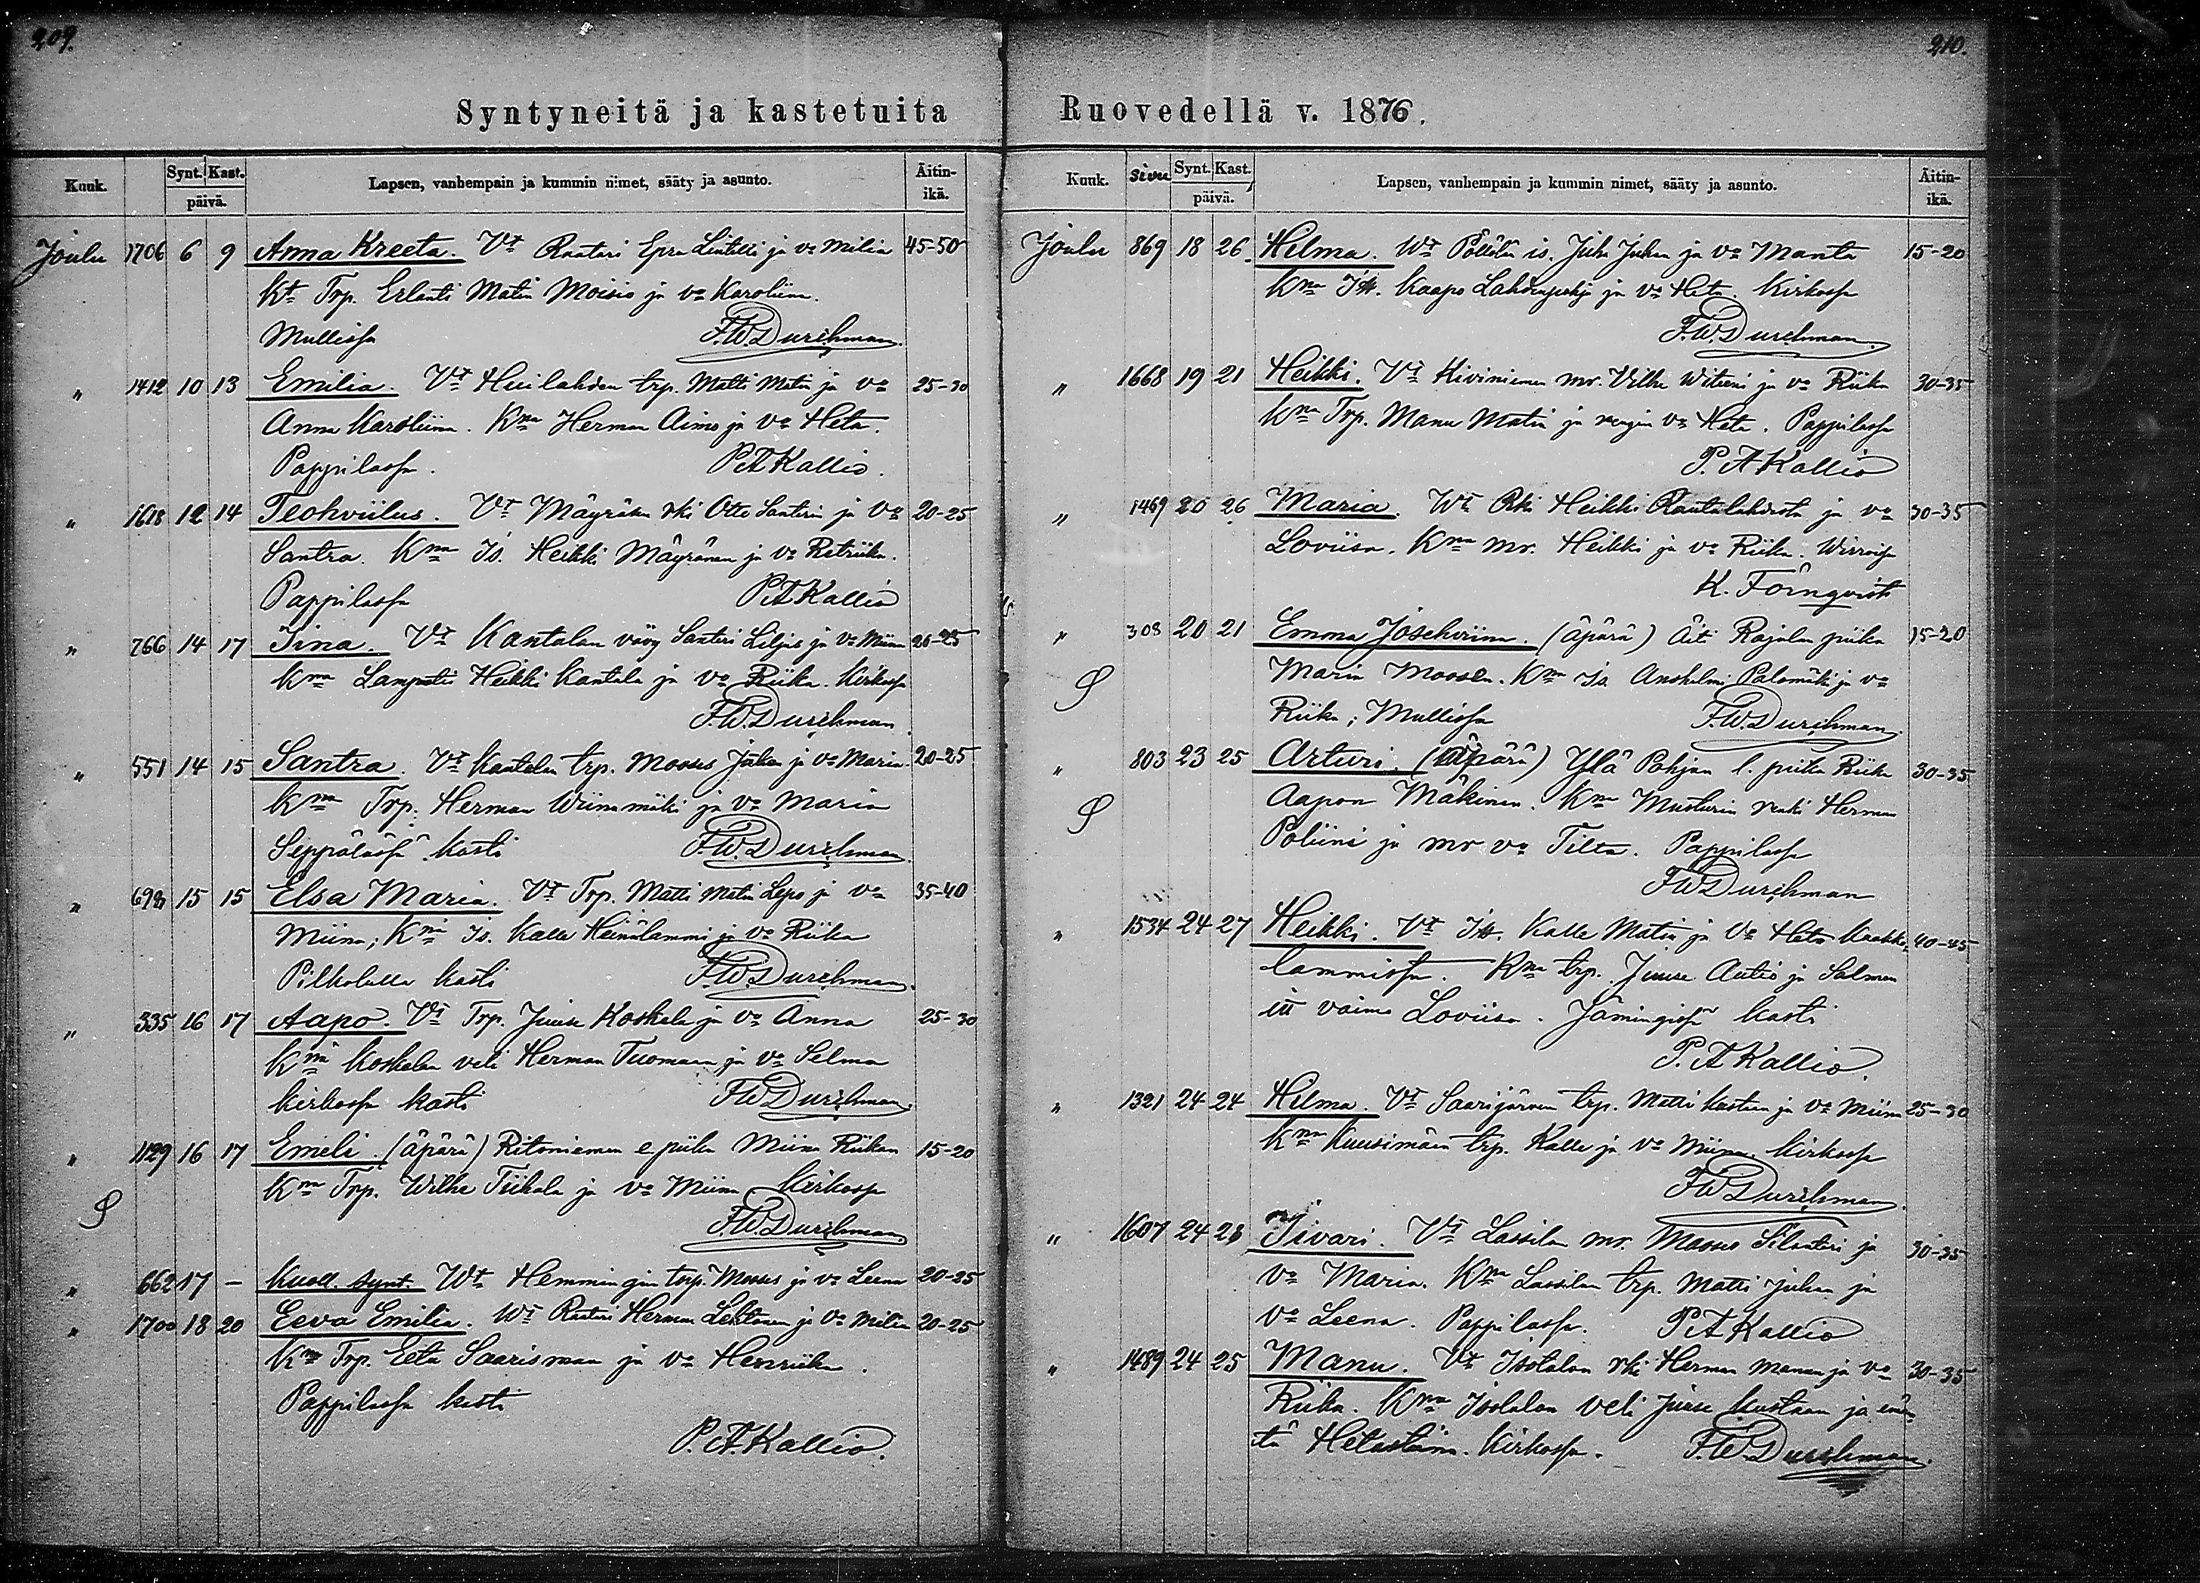 209.
Syntyneitä ja kastetuita
Kuuk. Synt. Kast. päivä. Lapsen, vanhempain ja kummin nimet, sääty ja asunto. Äitin-ikä.
Joulu 1706 6 9 Anna Kreeta. Vt Raatari Epra ja va Milia 45-50
Kt Trp. Erlanti Matin Moisio ja va Karoliina.
Mullissa F.W.Durchman.
" 1412 10 13 Emilia. Vt Huilahden trp. Matti Matin ja va 25-30
Anna Karoliina. Kna Herman Aimo ja va Heta.
Pappilassa. P.A Kallio.
" 1618 12 14 Teohviilus. Vt Mäyrän rki Otto Santerin ja Va 20-25
Santra. Kna Is. Heikki Mäyränen ja va Retriika.
Pappilassa P.A Kallio
" 766 14 17 Iina. Vt Kantalan vävy Santeri Liljus ja va Miina 20-25
Kna Lampuoti Heikki Kantala ja va Riika. Kirkossa
F.W.Durchman
" 551 14 15 Santra. Vt Kantelen trp. Mooses Juhan ja va Maria 20-25
Kna Trp. Herman Wiinamäki ja va Maria
Seppälässä kasti F.W.Durchman.
" 698 15 15 Elsa Maria. Vt Trp. Matti Matin Lepo ja va 35-40
Miina; Kna Is. Kalle Heinälammi ja va Riika
kasti F.W.Durchman.
" 335 16 17 Aapo. Vt Trp. Juuse Koskela ja va Anna 25-30
Kna Koskelan veli Herman Tuomaan ja va Selma
kirkossa kasti F.W.Durchman.
" 1129 16 17 Emeli. (äpärä) Ritoniemen e piika Miina Riikan 15-20
Kna Trp. Wilhe Tiikala ja va Miina Kirkossa
F.W.Durchman.
" 662 17 — Kuoll. synt. Wt Hemmingin torp. Mooses ja va Leena 20-25
" 1700 18 20 Eeva Emilia. Wt Raatari Herman Lehtonen ja va Milia 20-25
Kna Trp. Eetu Saarisman ja va Henriika.
Pappilassa kasti
P.A.Kallio.
210.
Ruovedellä v. 1876.
Kuuk. sivu Synt. Kast. päivä. Lapsen, vanhempain ja kummin nimet, sääty ja asunto. Äitin-ikä.
Joulu 869 18 26 Hilma. Wt Pöllölän is. Juha Juhan ja va Manta 15-20
Kna Itt. Kaapo Lahdenpohja ja va Heta. Kirkossa
F.W.Durchman.
" 1668 19 21 Heikki. Vt Kiviniemen mr. Vilhe ja va Riika 30-35
Kna Trp. Manu Matin ja rengin va Heta. Pappilassa
P.A Kallio
" 1469 20 26 Maria. Wt Rki Heikki Rantalahdesta ja va 30-35
Loviisa. Kna mr. Heikki ja va Riika. Wirroissa
K. Förnqvist
" 308 20 21 Emma Josehviina. (äpärä) Äiti Rajalan piika 15-20
Maria Moosen. Kna Is. Anshelmi Palomäki ja va
Riika; Mullissa F.W.Durchman.
" 803 23 25 Arturi. (äpärä) Ylä Pohjan l. piika Riika 30-35
Aapon Mäkinen. Kna Musturin renki Herman
Poliini ja mr va Tilta. Pappilassa
F.W.Durchman
" 1534 24 27 Heikki. Vt Itt. Kalle Matin ja Va Heta 40-45
lammissa. Kna trp. Juuse Autio ja Salmen
itt vaimo Loviisa. Jämingissä kasti
P.A Kallio.
" 1321 24 24 Hilma. Vt Saarijärven trp. Matti Kustaan ja va Miina 25-30
Kna Kuusimäen trp. Kalle ja va Miina. Kirkossa
F.W.Durchman.
" 1607 24 28 Iivari. Vt Lassilan mr. Mooses ja 30-35
Va Maria. Kna Lassilan trp. Matti Juhan ja
va Leena. Pappilassa. P.A Kallio
" 1489 24 25 Manu. Vt Isotalon rki Herman Manun ja va 30-35
Riika. Kna Isotalon veli Juuse Kustaan ja emän
tä. Kirkossa. F.W.Durchman.